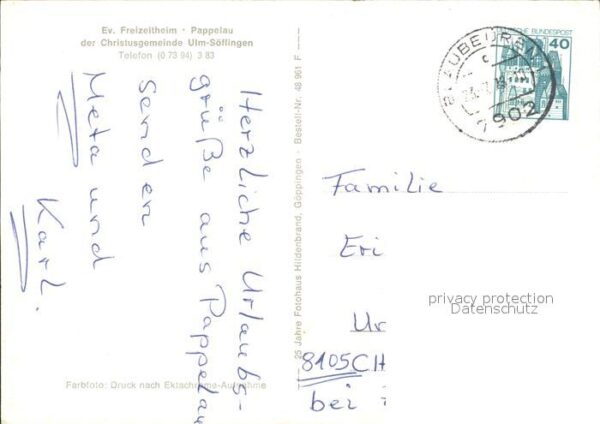 Ev. Freizeitheim · Pappelau
der Christusgemeinde Ulm-Söflingen
Telefon (0 73 94) 3 83
Herzliche Urlaubs-
grüße aus Pappelau
senden
Meta und
Karl.
25 Jahre Fotohaus Hildenbrand, Göppingen - Bestell-Nr. 48 961 F
Farbfoto: Druck nach Ektachrome-Aufnahme
BLAUBEUREN 1
c
7902
DEUTSCHE BUNDESPOST
40
Familie
Eri
Ur
8105 CH
bei
privacy protection
Datenschutz